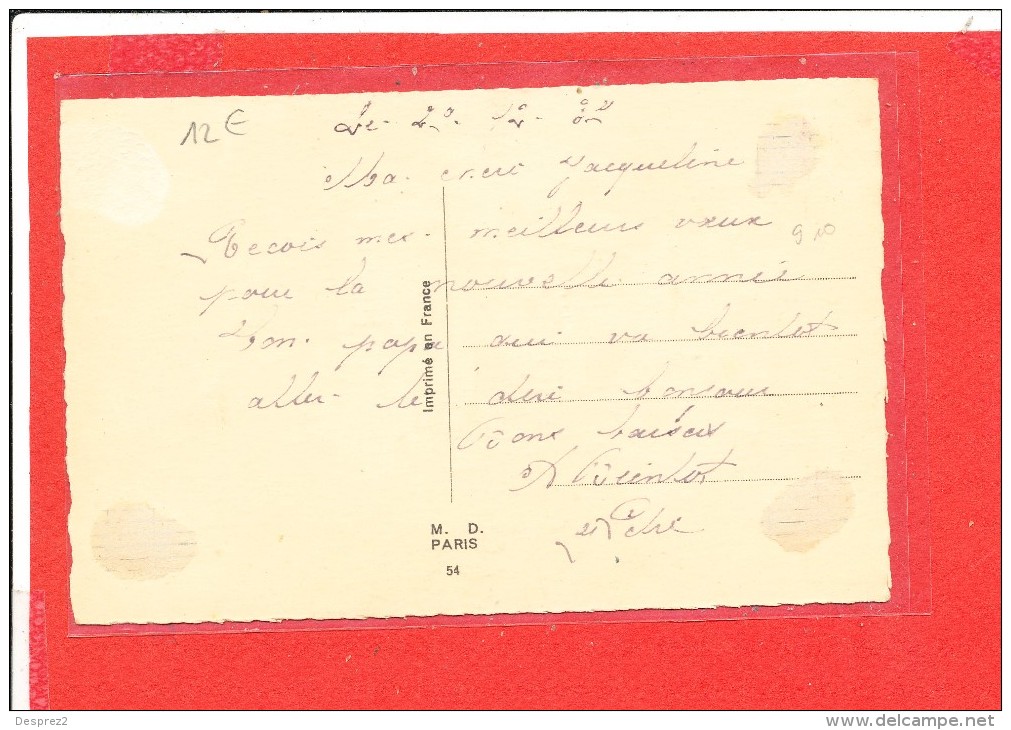 12 €
Le 29. 12.
Ma cheri Jacqueline
Recois mes meilleurs vœux
9 10
pour la nouvelle année
Ton papa qui va bientot
aller te dire bonjour
Bons baisers
A Bientot
Imprimé en France
M. D.
PARIS
54
Desprez2
www.delcampe.net